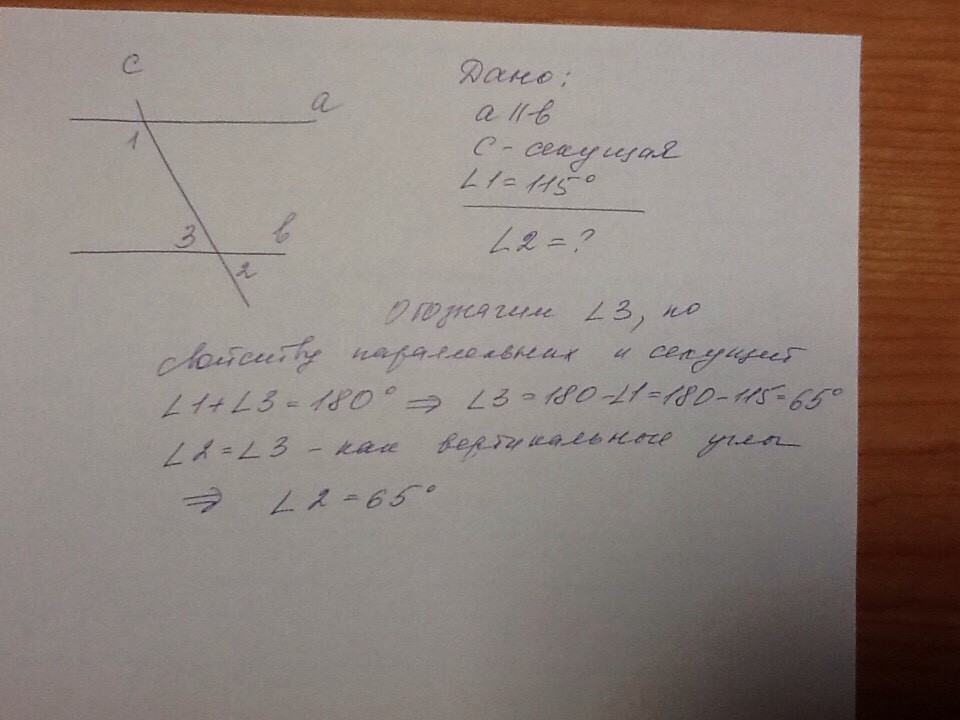 с
a
1
3
в
2
Дано:
a || в
С - секущая
∠1 = 115°
∠2 = ?
Обозначим ∠3, по
свойству параллельных и секущей
∠1 + ∠3 = 180° ⇒ ∠3 = 180 - ∠1 = 180 - 115 = 65°
∠2 = ∠3 - как вертикальные углы
⇒ ∠2 = 65°